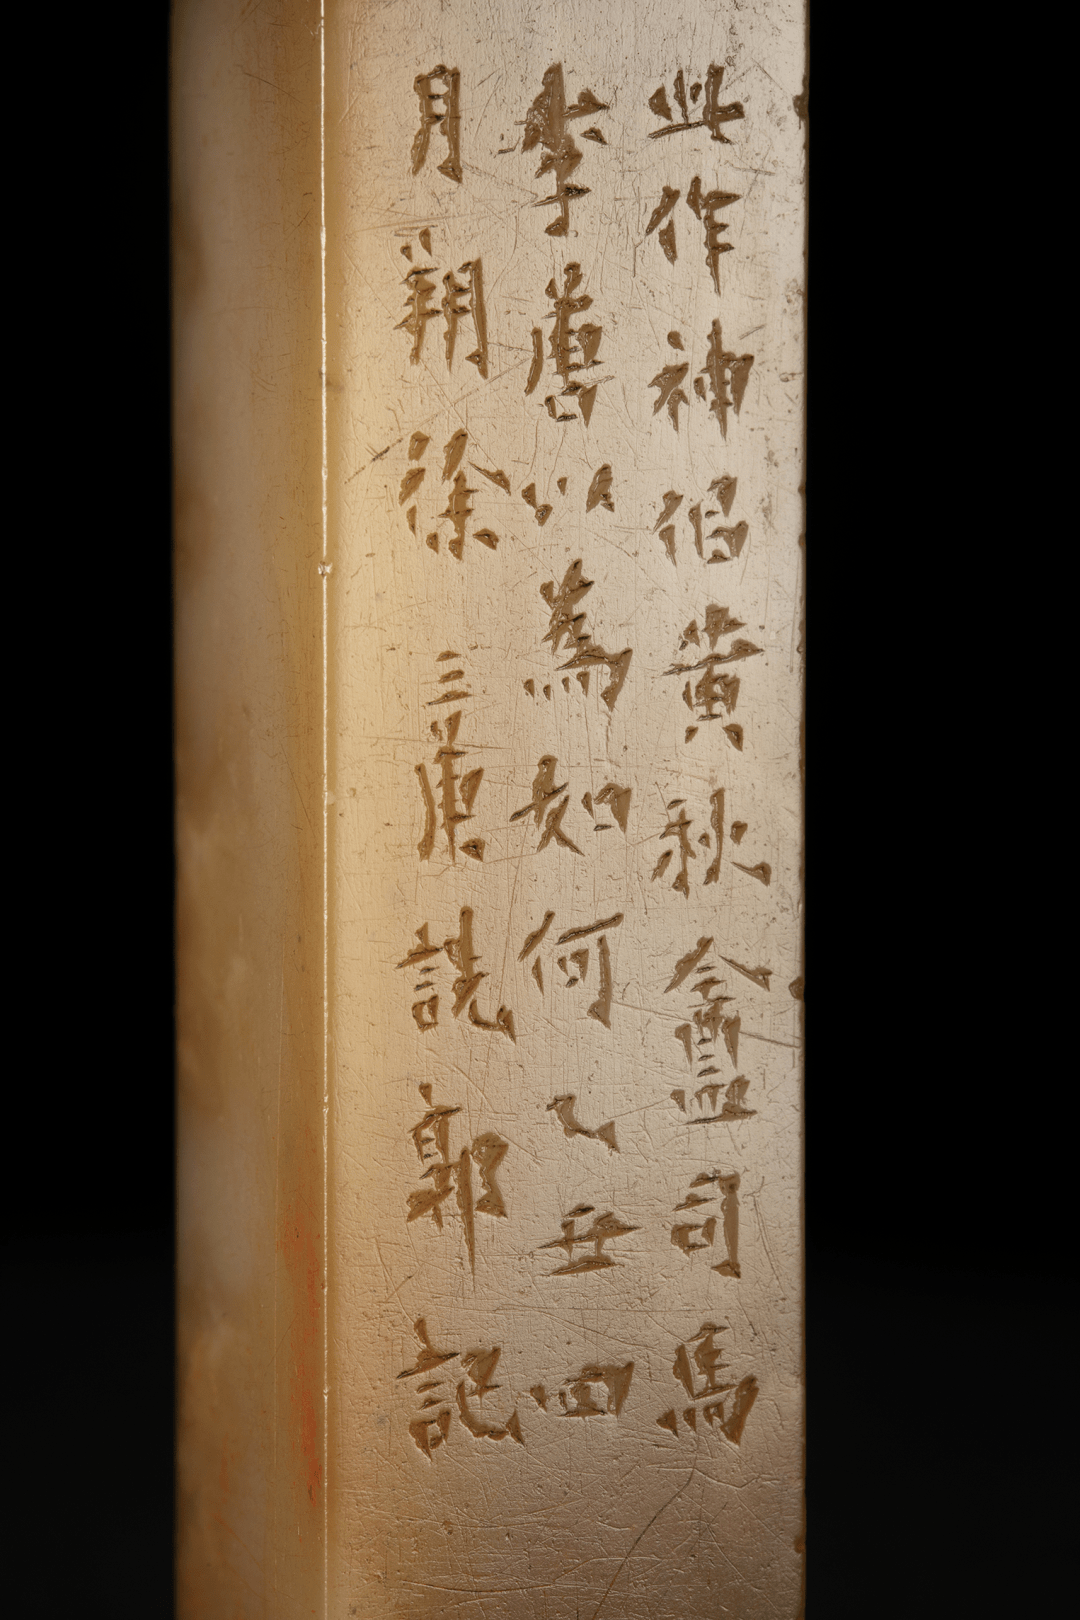 此作神佀黃秋盦司馬
李唐以為如何乙丑四
月朔徐三庚詵郭記